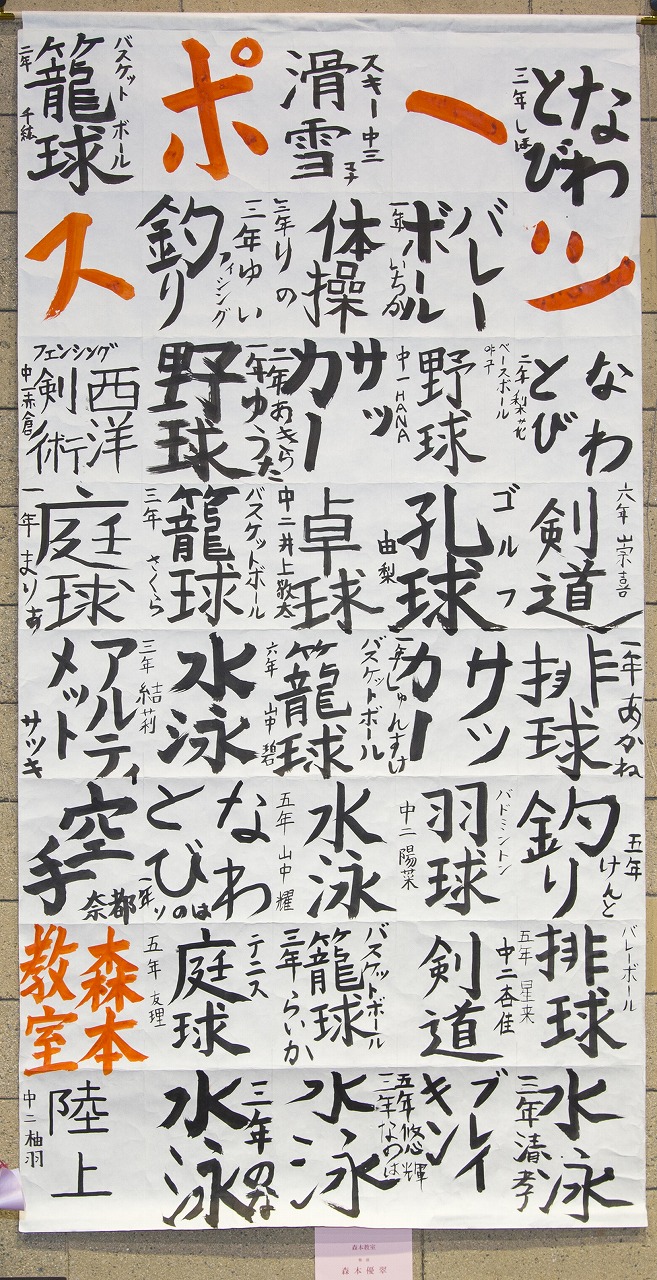 なわ
とび
三年 しほ
ー
スキー 中三
滑雪
ポ
バスケットボール
籠球
二年 千紘
ツ
バレー
ボール
一年 いちか
体操
三年 りの
三年 ゆい
フィシング
釣り
ス
なわ
とび
二年 梨花
ベースボール
野球
中一 HANA
サッ
カー
二年 あきら
一年 ゆうた
野球
フェンシング
西洋
剣術
中 赤倉
六年 崇喜
剣道
ゴルフ
孔球
由梨
卓球
中二 井上敬太
バスケットボール
籠球
三年 さくら
庭球
一年 まりあ
一年 あかね
排球
サッ
カー
一年 しゅんすけ
バスケットボール
籠球
六年 山中 碧
水泳
三年 結莉
アルティ
メット
サツキ
五年 けんと
釣り
バドミントン
羽球
中二 陽菜
水泳
五年 山中 耀
なわ
とび
一年 りのは
空手
奈都
バレーボール
排球
五年 星来
中二 杏佳
剣道
バスケットボール
籠球
三年 らいか
テニス
庭球
五年 友理
森本
教室
水泳
三年 清孝
ブレイ
キン
五年 悠輝
三年 なのは
水泳
三年 のな
水泳
陸上
中二 柚羽
森木教室
森木優翠